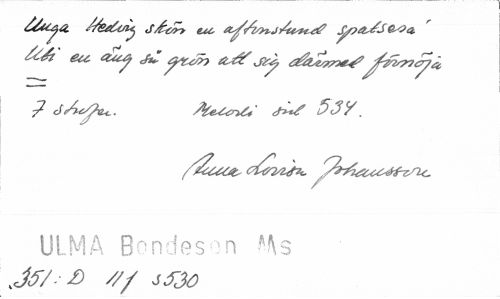 Unga Hedvig skön en aftonstund spatsera'
Uti en äng så grön att sig därmed förnöja
=
7 strofer. Melodi sid 534.
Anna Lovisa Johansson
ULMA Bondeson Ms
351:D 11f s530